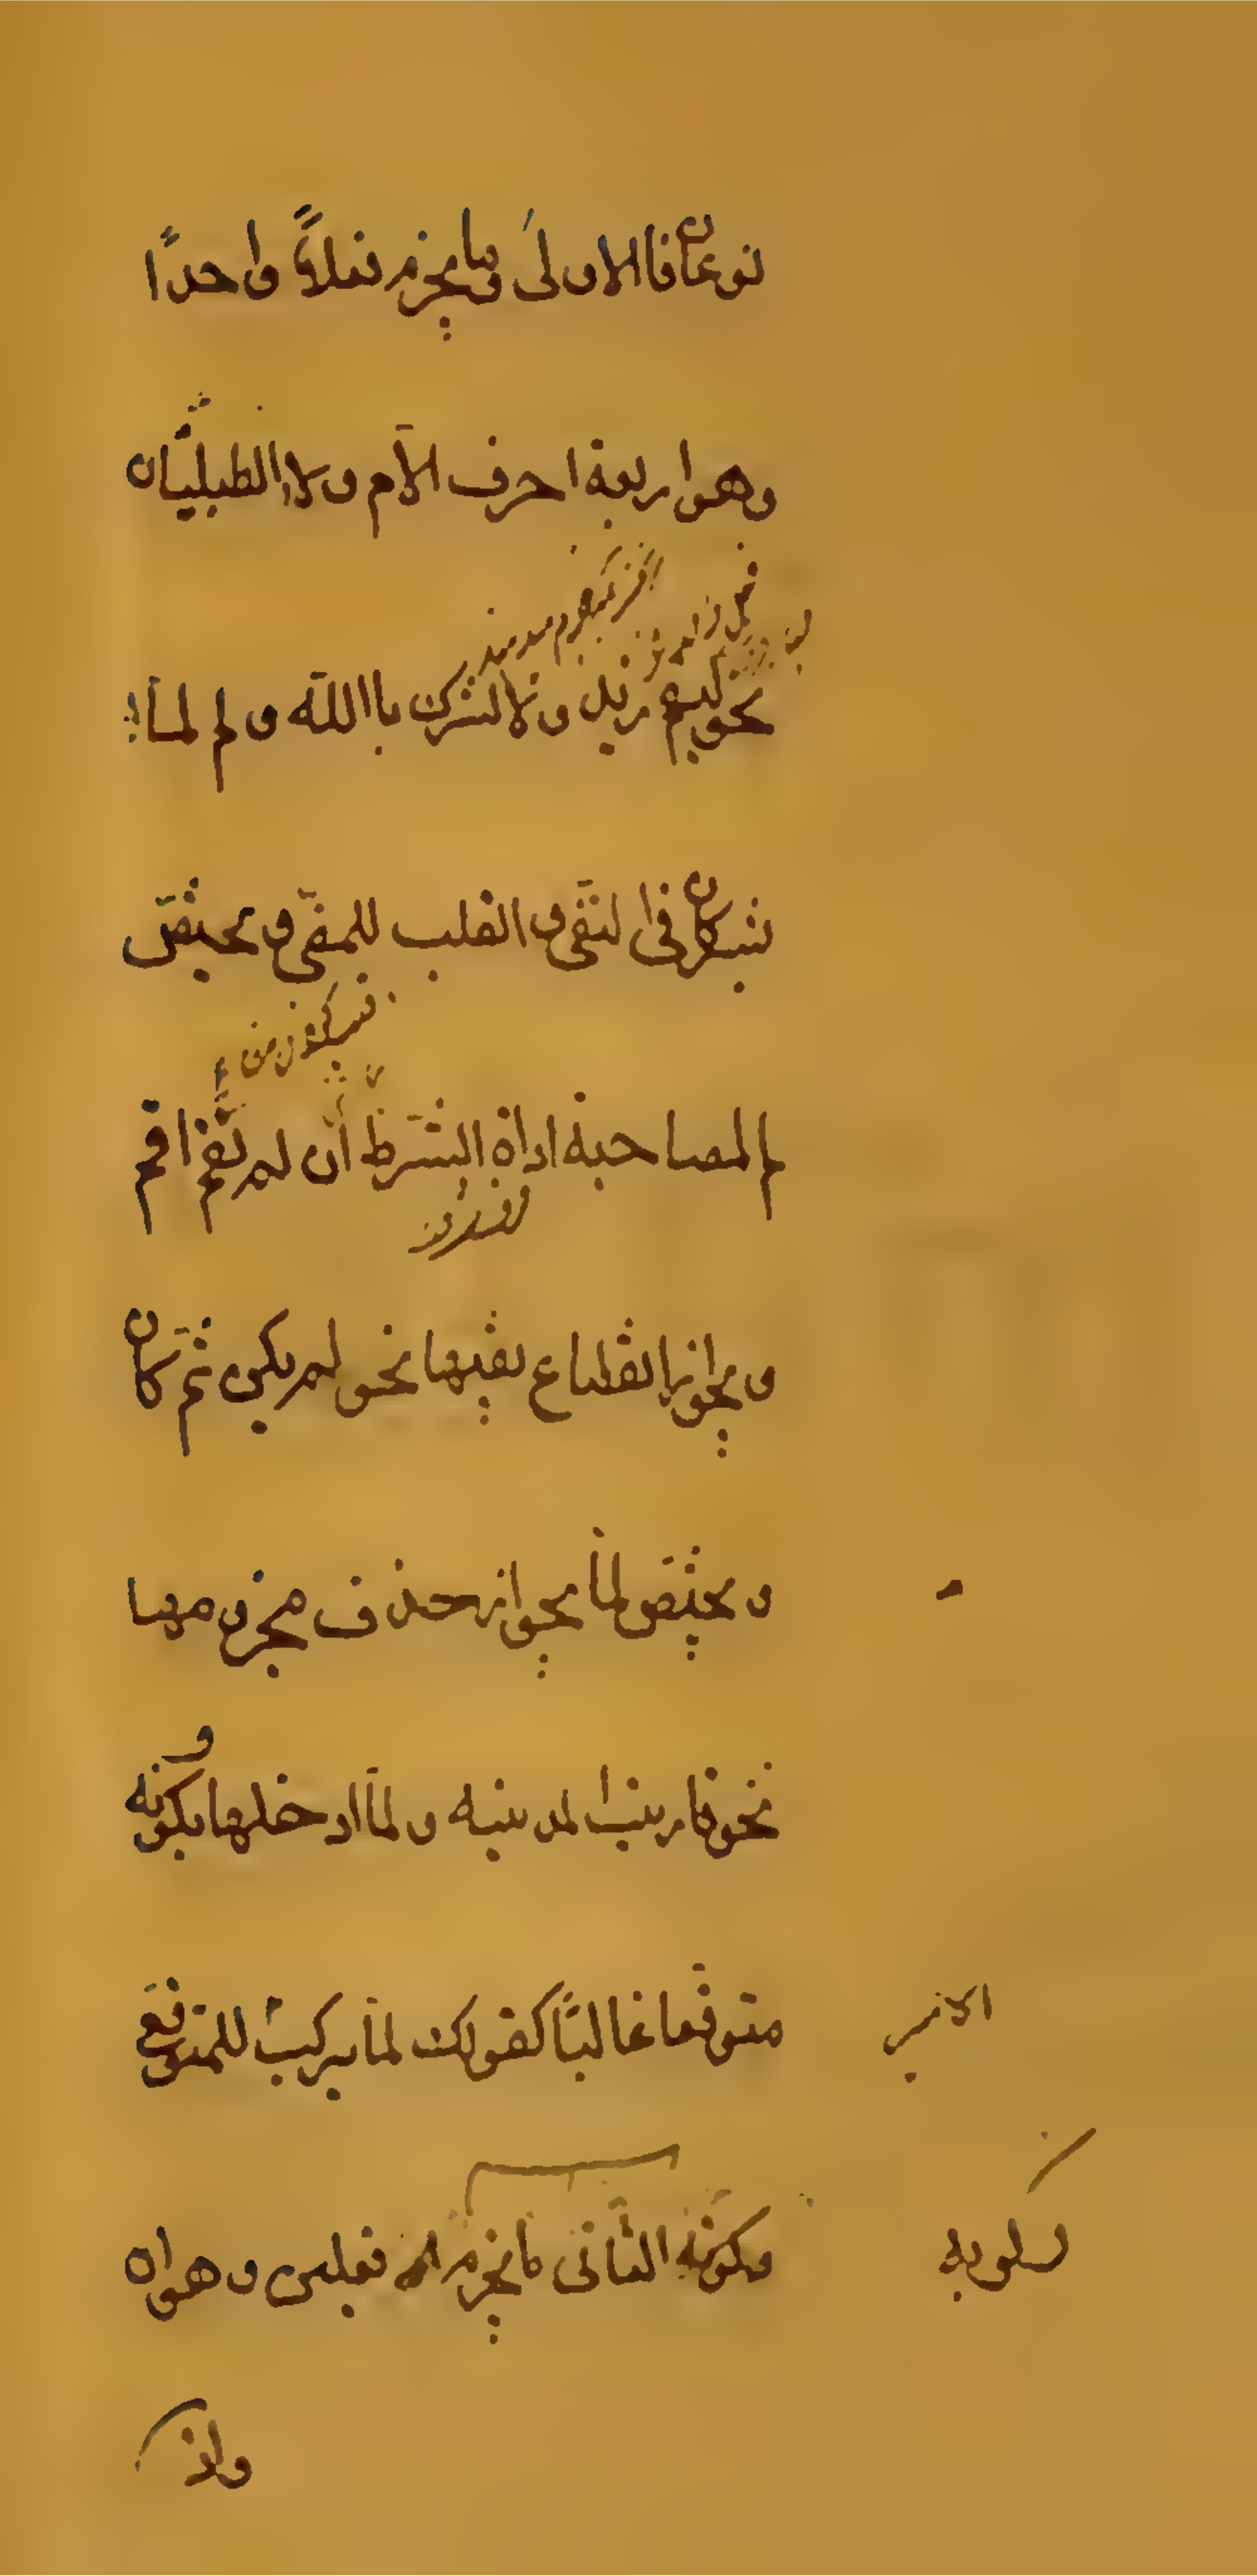 نوعان فالاولیٰ مایجزم فعلاً واحدًا
وهو اربعة احرف الآم ولا الطبلیّان
نحو لیقم زید ولا تشرک باالله و لم لمّا و
یشترکان فی النفی و القلب للمضی و یختص
لم المصاحبة اداة الشرط أن لم تقم اقم
و یجواز انقطاع نفیها نحو لم یکن ثمّ کان
و یختص لمّا بجواز حذف مجزومها
نحو قاربت المدینة و لمّا ادخلها و بکونه
متوقعا غالبًا کقولک لمّا یرکب للمتوقع
الامیر
رکوبه
الثانی مایجزم فعلین و هو ان
واذ